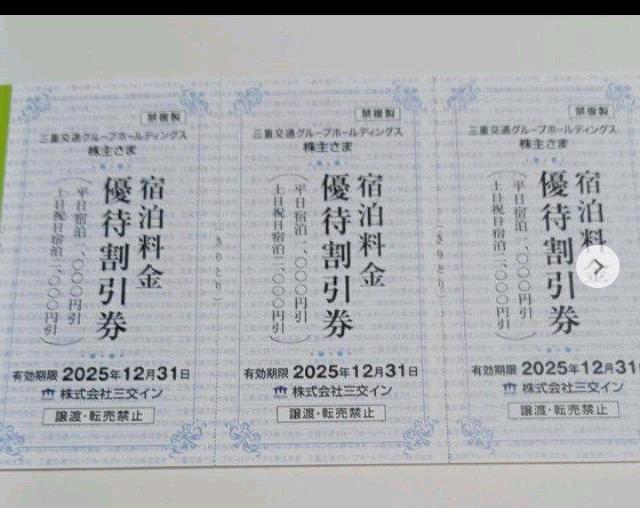 禁複製
三重交通グループホールディングス
株主さま
宿泊料金
優待割引券
（平日宿泊 一、〇〇〇円引
土日祝日宿泊二、〇〇〇円引）
有効期限 2025年12月31日
株式会社三交イン
譲渡・転売禁止
（きりとり）
禁複製
三重交通グループホールディングス
株主さま
宿泊料金
優待割引券
（平日宿泊 一、〇〇〇円引
土日祝日宿泊二、〇〇〇円引）
有効期限 2025年12月31日
株式会社三交イン
譲渡・転売禁止
（きりとり）
禁複製
三重交通グループホールディングス
株主さま
宿泊料金
優待割引券
（平日宿泊 一、〇〇〇円引
土日祝日宿泊二、〇〇〇円引）
有効期限 2025年12月31
株式会社三交イン
譲渡・転売禁止